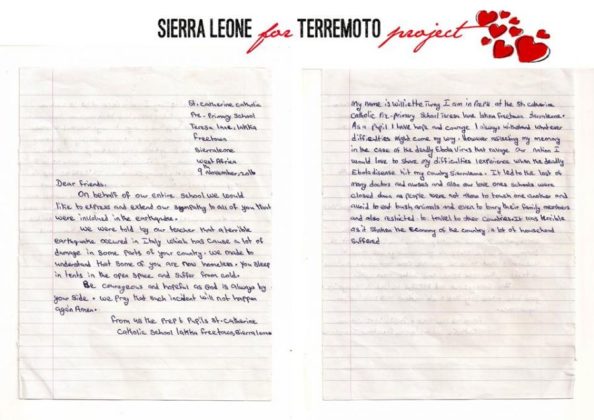 SIERRA LEONE for TERREMOTO project
St. Catherine Catholic
Pre-Primary School
Teresa lane, Lakka
Freetown
Sierraleone
West Africa
9th November, 2016
Dear friends,
On behalf of our entire school we would
like to express and extend our sympathy to all of you that
were involved in the earthquake.
We were told by our teacher that a terrible
earthquake occured in Italy which has cause a lot of
damage in some parts of your country. We made to
understand that some of you are now homeless. You sleep
in tents in the open space and suffer from cold.
Be courageous and hopeful as God is always by
your side. We pray that such incident will not happen
again Amen.
From us the Prep 4 Pupils St. Catherine
Catholic School Lakka Freetown, Sierraleone
My name is Williette Turay I am in Prep4 of the St. Catherine
Catholic Pre-Primary School Teresa lane lakka Freetown Sierraleone.
As a Pupil I have hope and courage I always withstand whatever
difficulties might come my way. However refreshing my memory
in the case of the deadly Ebola Virus that ravage our nation I
would love to share my difficulties I experience when the deadly
Ebola disease hit my country Sierraleone. It led to the lost of
many doctors and nurses and also our love ones schools were
closed down as people were not allow to touch one another and
avoid to eat bush animals and even to bury their family members
and also restricted to travel to other Countries It was terrible
as it shaken the economy of the country a lot of household
suffered